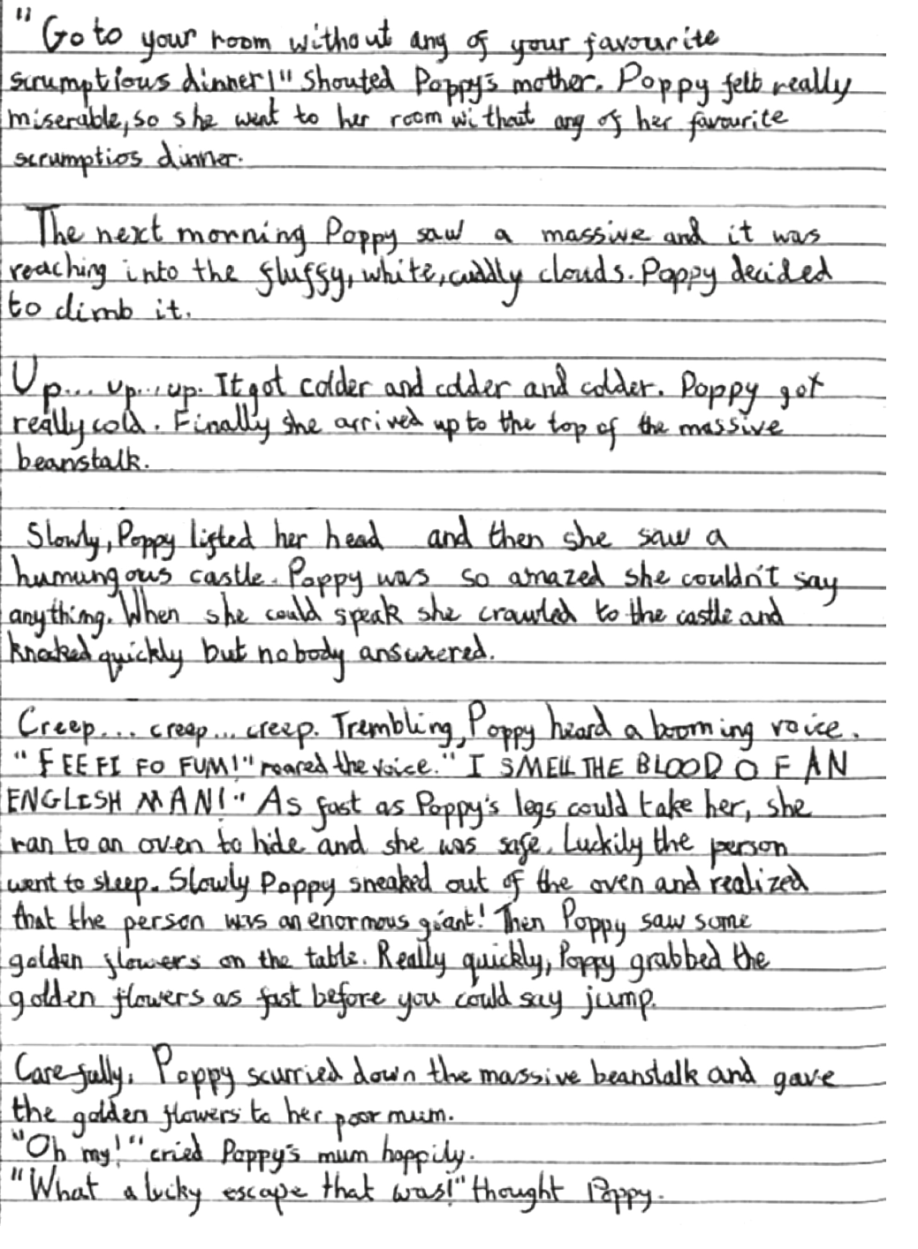 "Go to your room without any of your favourite
scrumptious dinner!" Shouted Poppy's mother. Poppy felt really
miserable, so she went to her room without any of her favourite
scrumptios dinner.
The next morning Poppy saw a massive and it was
reaching into the fluffy, white, cuddly clouds. Poppy decided
to climb it.
Up... up... up. It got colder and colder and colder. Poppy got
really cold. Finally she arrived up to the top of the massive
beanstalk.
Slowly, Poppy lifted her head and then she saw a
humungous castle. Poppy was so amazed she couldn't say
anything. When she could speak she crawled to the castle and
knocked quickly but nobody answered.
Creep... creep... creep. Trembling, Poppy heard a booming voice.
"FEE FI FO FUM!" roared the voice. "I SMELL THE BLOOD OF AN
ENGLISH MAN!" As fast as Poppy's legs could take her, she
ran to an oven to hide and she was safe. Luckily the person
went to sleep. Slowly Poppy sneaked out of the oven and realized
that the person was an enormous giant! Then Poppy saw some
golden flowers on the table. Really quickly, Poppy grabbed the
golden flowers as fast before you could say jump.
Carefully, Poppy scurried down the massive beanstalk and gave
the golden flowers to her poor mum.
"Oh my!" cried Poppy's mum happily.
"What a lucky escape that was!" thought Poppy.